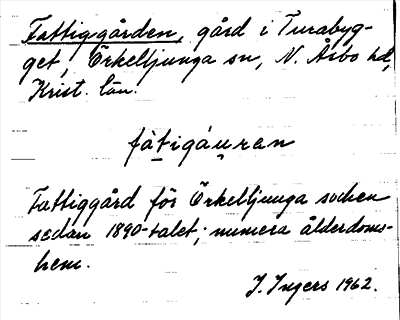 Fattiggården, gård i Turabyg-
get, Örkelljunga sn, N. Åsbo hd,
Krist. län.
fàtigáuren
Fattiggård för Örkelljunga socken
sedan 1890-talet; numera ålderdoms-
hem.
I. Ingers 1962.